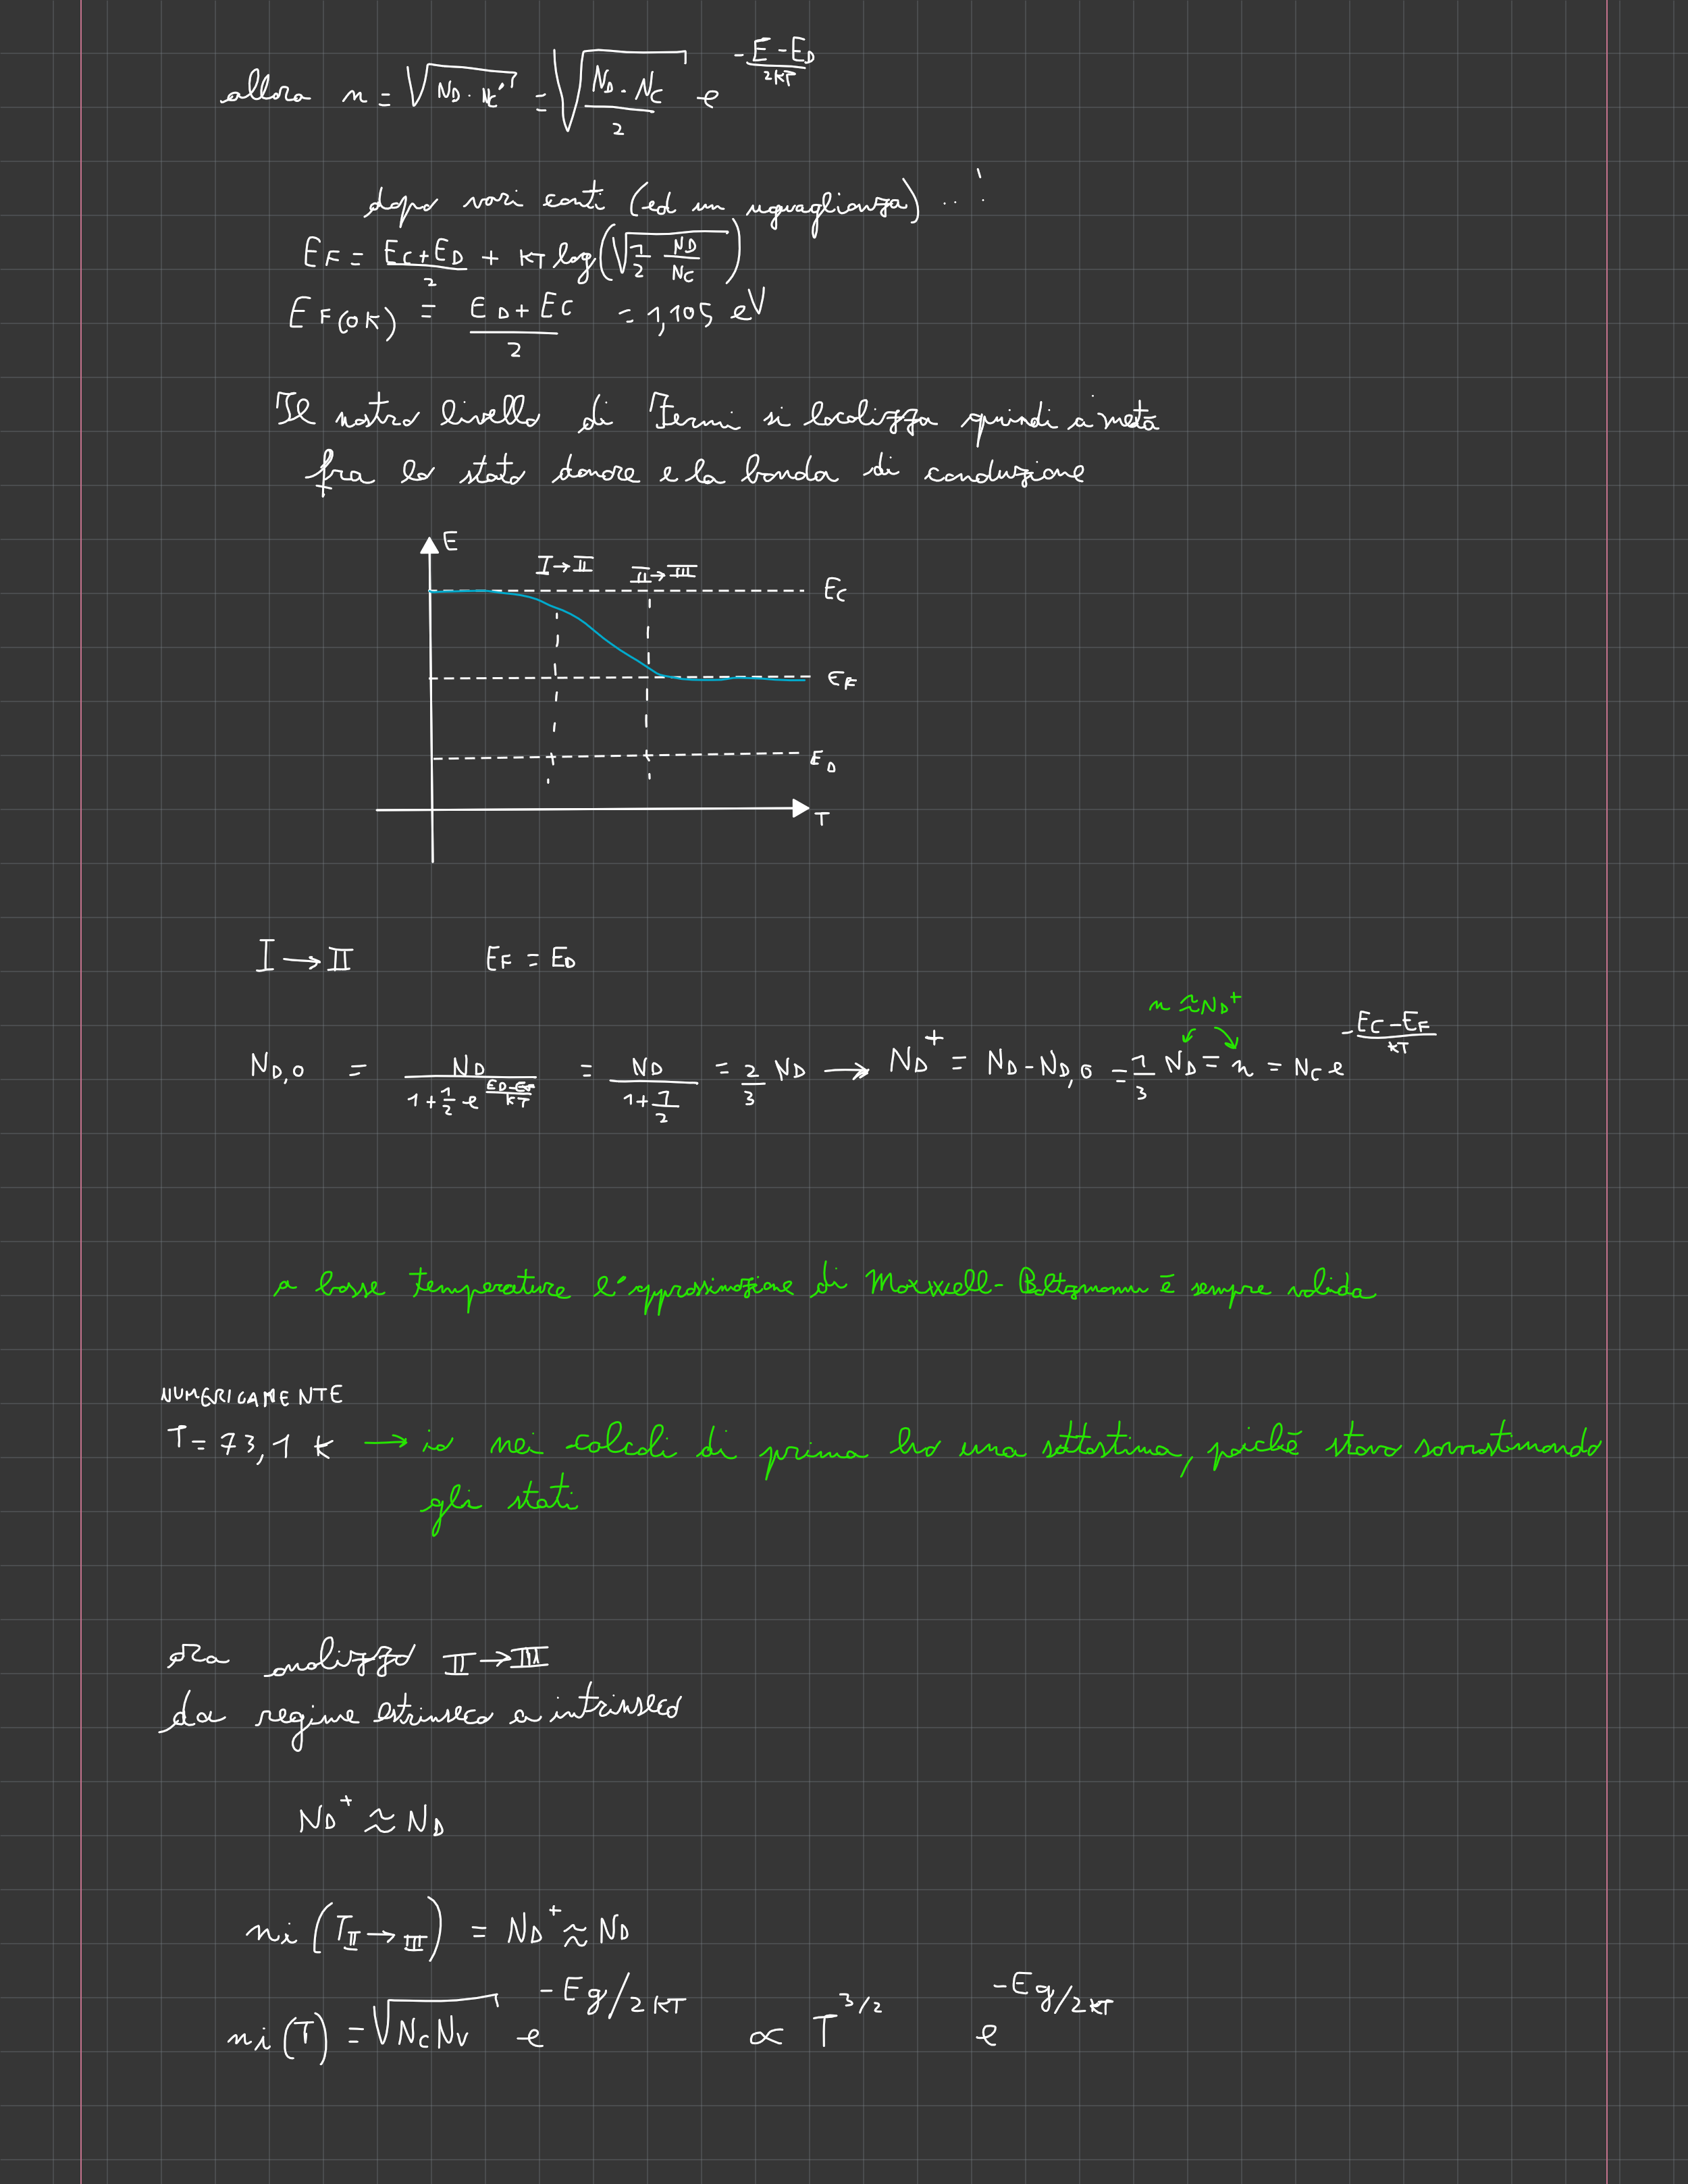 allora n = √(N_D · N_C') = √(N_D · N_C / 2) e^(-(E - E_D)/2KT)
dopo vari conti (ed un uguaglianza) ...
E_F = (E_C + E_D)/2 + KT log(√(1/2 N_D/N_C))
E_F(0K) = (E_D + E_C)/2 = 1,105 eV
Il nostro livello di Fermi si localizza quindi a metà
fra lo stato donore e la banda di conduzione
E
I → II
II → III
E_C
E_F
E_D
T
I → II E_F = E_D
n ≈ N_D^+
N_D,0 = N_D / (1 + 1/2 e^((E_D - E_F)/KT)) = N_D / (1 + 1/2) = 2/3 N_D → N_D^+ = N_D - N_D,0 = 1/3 N_D = n = N_C e^(-(E_C - E_F)/KT)
a basse temperature l'approssimazione di Maxwell-Boltzmann è sempre valida
NUMERICAMENTE
T = 73,1 K → io nei calcoli di prima ho una sottostima, poichè stavo sovrastimando
gli stati
ora analizzo II → III
da regime estrinseco a intrinseco
N_D^+ ≈ N_D
ni (T_II→III) = N_D^+ ≈ N_D
ni (T) = √(N_C N_V) e^(-Eg/2KT) ∝ T^(3/2) e^(-Eg/2KT)